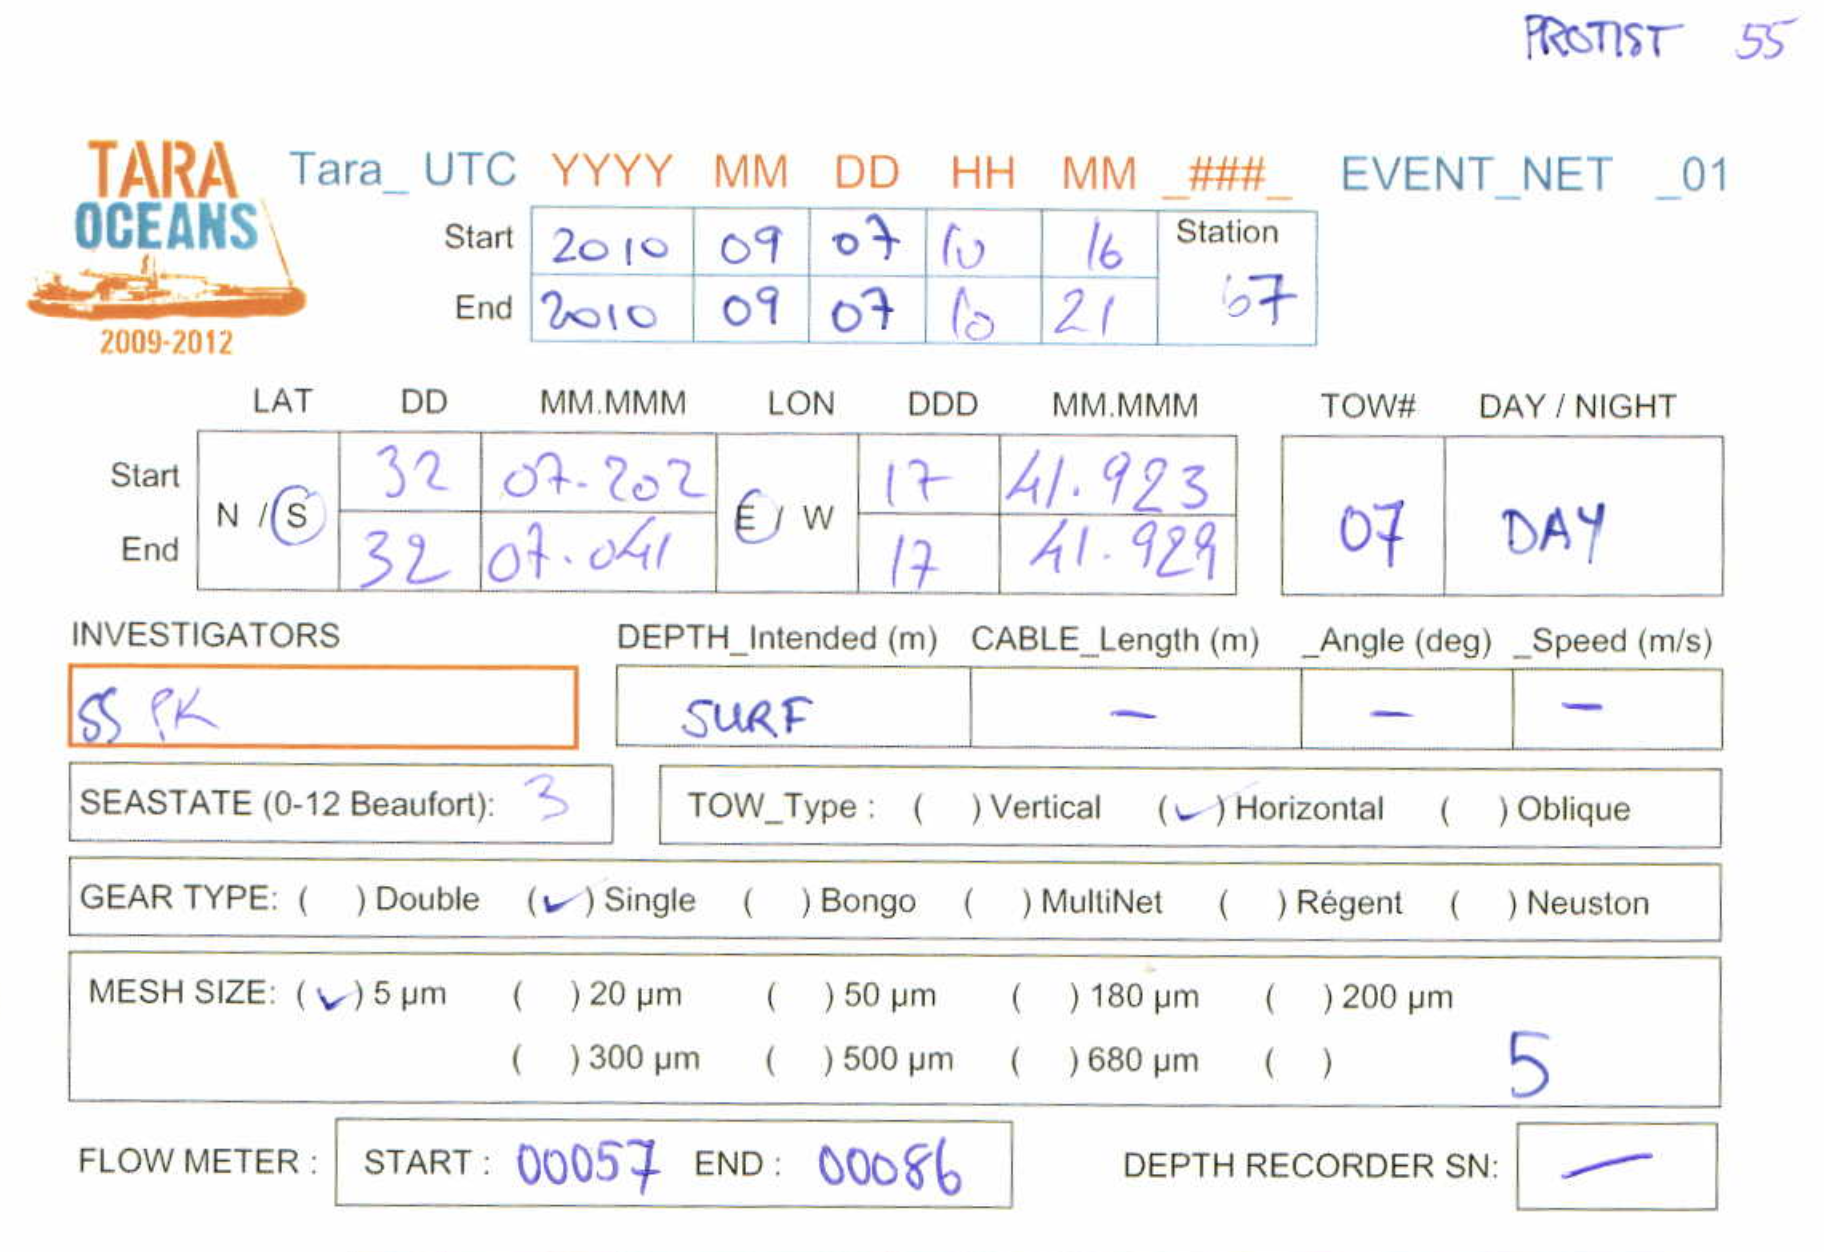 PROTIST 55
TARA OCEANS 2009-2012
Tara_ UTC YYYY MM DD HH MM _###_ EVENT_NET _01
Start 2010 09 07 10 16 Station
End 2010 09 07 10 21 67
LAT DD MM.MMM LON DDD MM.MMM TOW# DAY / NIGHT
Start 32 07.202 17 41.923
N / S E / W 07 DAY
End 32 07.041 17 41.929
INVESTIGATORS DEPTH_Intended (m) CABLE_Length (m) _Angle (deg) _Speed (m/s)
SS PK SURF – – –
SEASTATE (0-12 Beaufort): 3 TOW_Type : ( ) Vertical (✓) Horizontal ( ) Oblique
GEAR TYPE: ( ) Double (✓) Single ( ) Bongo ( ) MultiNet ( ) Régent ( ) Neuston
MESH SIZE: (✓) 5 µm ( ) 20 µm ( ) 50 µm ( ) 180 µm ( ) 200 µm
( ) 300 µm ( ) 500 µm ( ) 680 µm ( ) 5
FLOW METER : START : 00057 END : 00086 DEPTH RECORDER SN: –